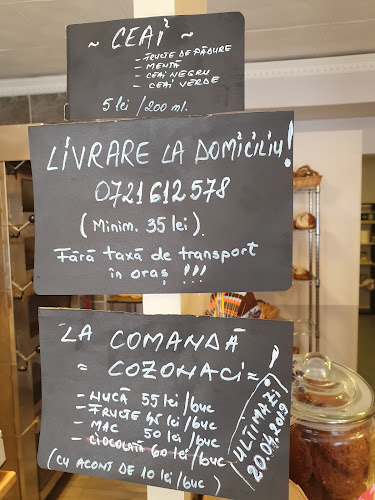 ~ CEAI ~
- FRUCTE DE PĂDURE
- MENTĂ
- CEAI NEGRU
- CEAI VERDE
5 lei / 200 ml.
LIVRARE LA DOMICILIU!
0721612578
(Minim. 35 lei).
Fără taxă de transport
în oraș !!!
LA COMANDĂ
= COZONACI = !
- NUCĂ 55 lei/buc
- FRUCTE 45 lei/buc
- MAC 50 lei/buc
- CIOCOLATĂ 60 lei/buc
(CU ACONT DE 10 lei/buc)
ULTIMA ZI
20.04.2019